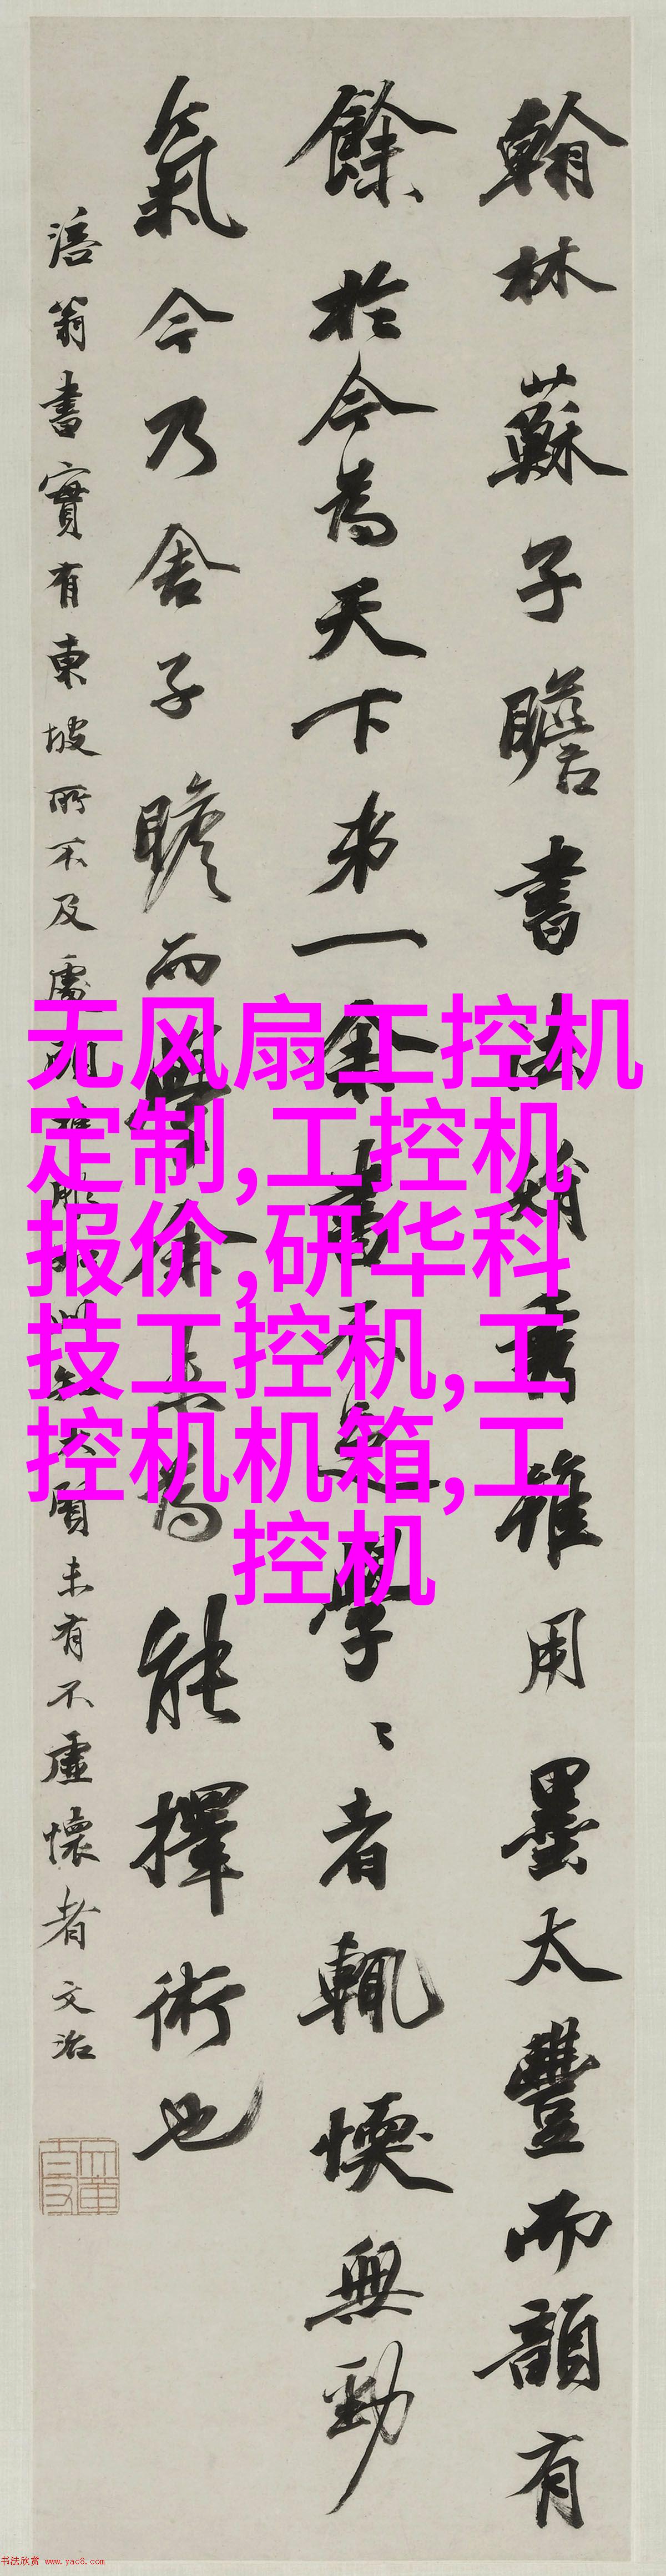 翰林蘇子瞻書法娟秀雖用墨太豐而韻有
餘於今為天下弟一余書不足學〻者輒愞無勁
氣今乃舍子瞻而學余未為能擇術也
涪翁書實有東坡所不及處
未有不虛懷者文治
无风扇工控机
定制,工控机
报价,研华科
技工控机,工
控机机箱,工
控机
书法欣赏 www.yac8.com